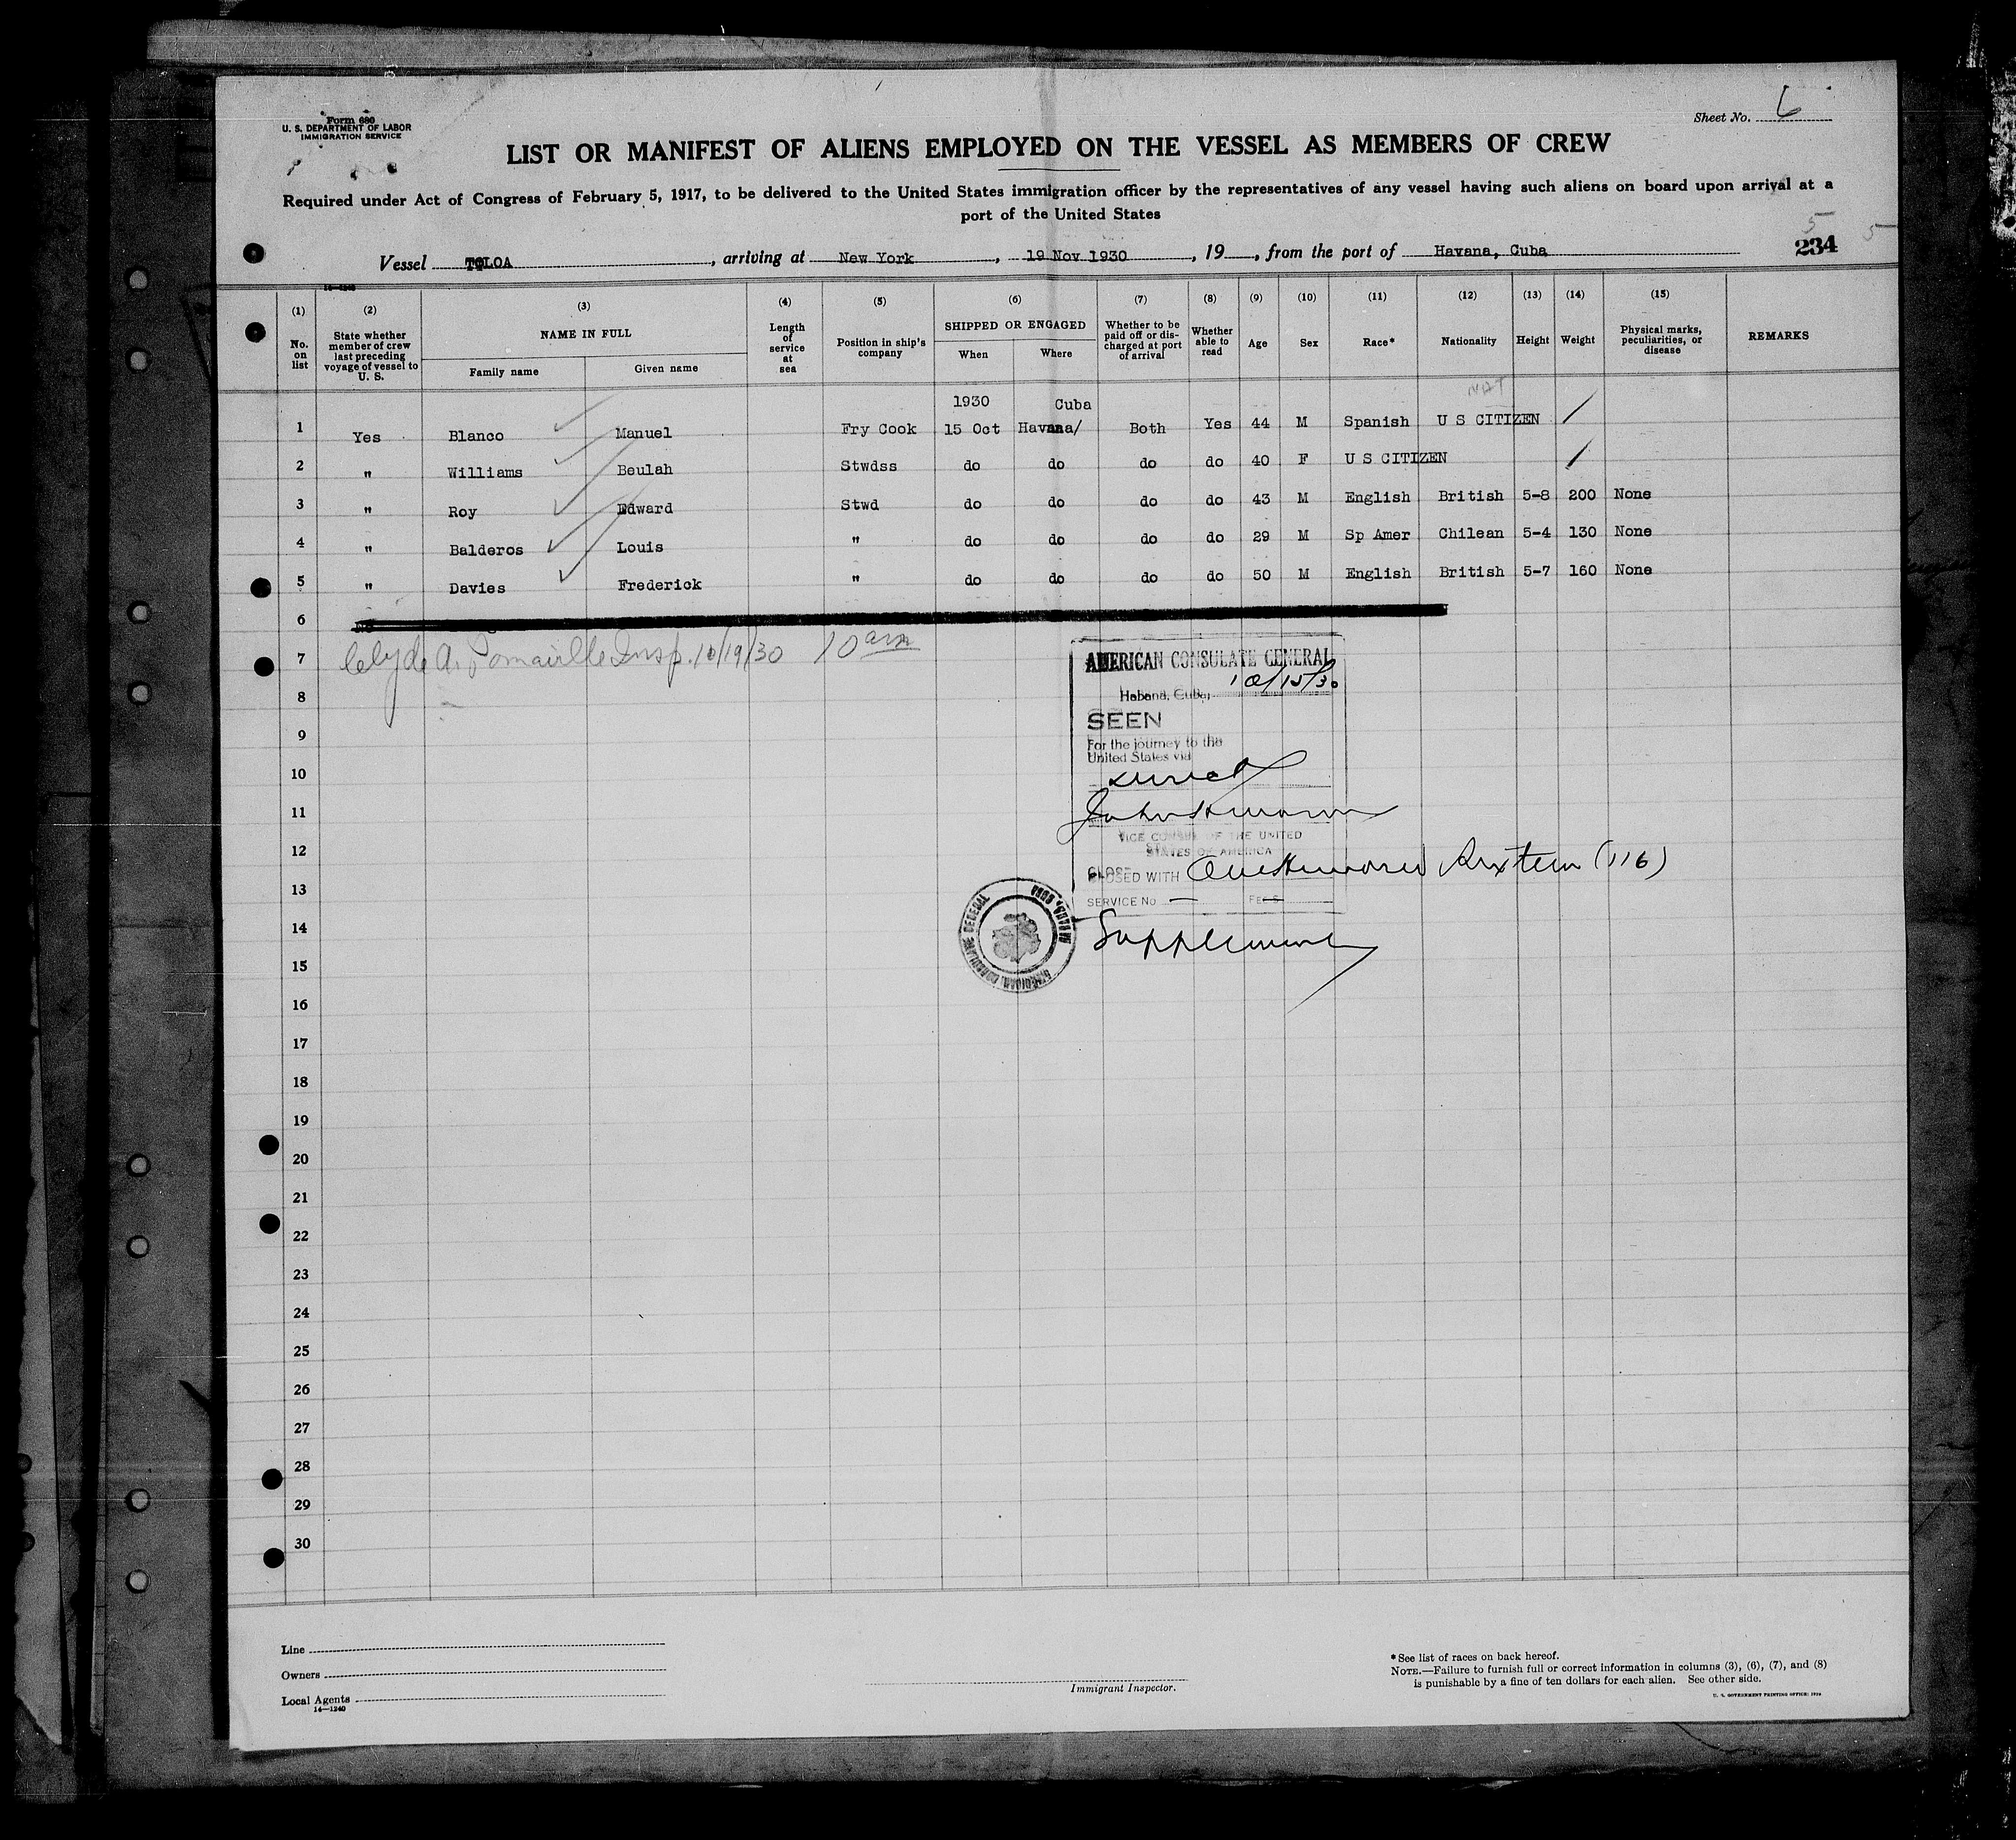 Form 680
U. S. DEPARTMENT OF LABOR
IMMIGRATION SERVICE
Sheet No. 6
LIST OR MANIFEST OF ALIENS EMPLOYED ON THE VESSEL AS MEMBERS OF CREW
Required under Act of Congress of February 5, 1917, to be delivered to the United States immigration officer by the representatives of any vessel having such aliens on board upon arrival at a
port of the United States
5 5
234
Vessel TOLOA, arriving at New York, 19 Nov 1930, 19 , from the port of Havana, Cuba
14—1240
(1) No. on list
(2) State whether member of crew last preceding voyage of vessel to U. S.
(3) NAME IN FULL
Family name Given name
(4) Length of service at sea
(5) Position in ship's company
(6) SHIPPED OR ENGAGED
When Where
(7) Whether to be paid off or discharged at port of arrival
(8) Whether able to read
(9) Age
(10) Sex
(11) Race*
(12) Nationality
(13) Height
(14) Weight
(15) Physical marks, peculiarities, or disease
REMARKS
1930 Cuba NAT
1 Yes Blanco Manuel Fry Cook 15 Oct Havana/ Both Yes 44 M Spanish U S CITIZEN /
2 " Williams Beulah Stwdss do do do do 40 F U S CITIZEN /
3 " Roy Edward Stwd do do do do 43 M English British 5-8 200 None
4 " Balderos Louis " do do do do 29 M Sp Amer Chilean 5-4 130 None
5 " Davies Frederick " do do do do 50 M English British 5-7 160 None
6
7 Clyde A. Pomaville Insp. 10/19/30 10 am
AMERICAN CONSULATE GENERAL
Habana, Cuba, 10/15/30
8
SEEN
9
For the journey to the
United States via
10 direct
11
VICE CONSUL OF THE UNITED
STATES OF AMERICA
12
CLOSED WITH One Hundred Sixteen (116)
13
SERVICE No — FEE $
AMERICAN CONSULATE GENERAL HABANA, CUBA
14 Supplemental
15
16
17
18
19
20
21
22
23
24
25
26
27
28
29
30
Line
Owners
Local Agents
14—1240
Immigrant Inspector.
*See list of races on back hereof.
NOTE.—Failure to furnish full or correct information in columns (3), (6), (7), and (8)
is punishable by a fine of ten dollars for each alien. See other side.
U. S. GOVERNMENT PRINTING OFFICE: